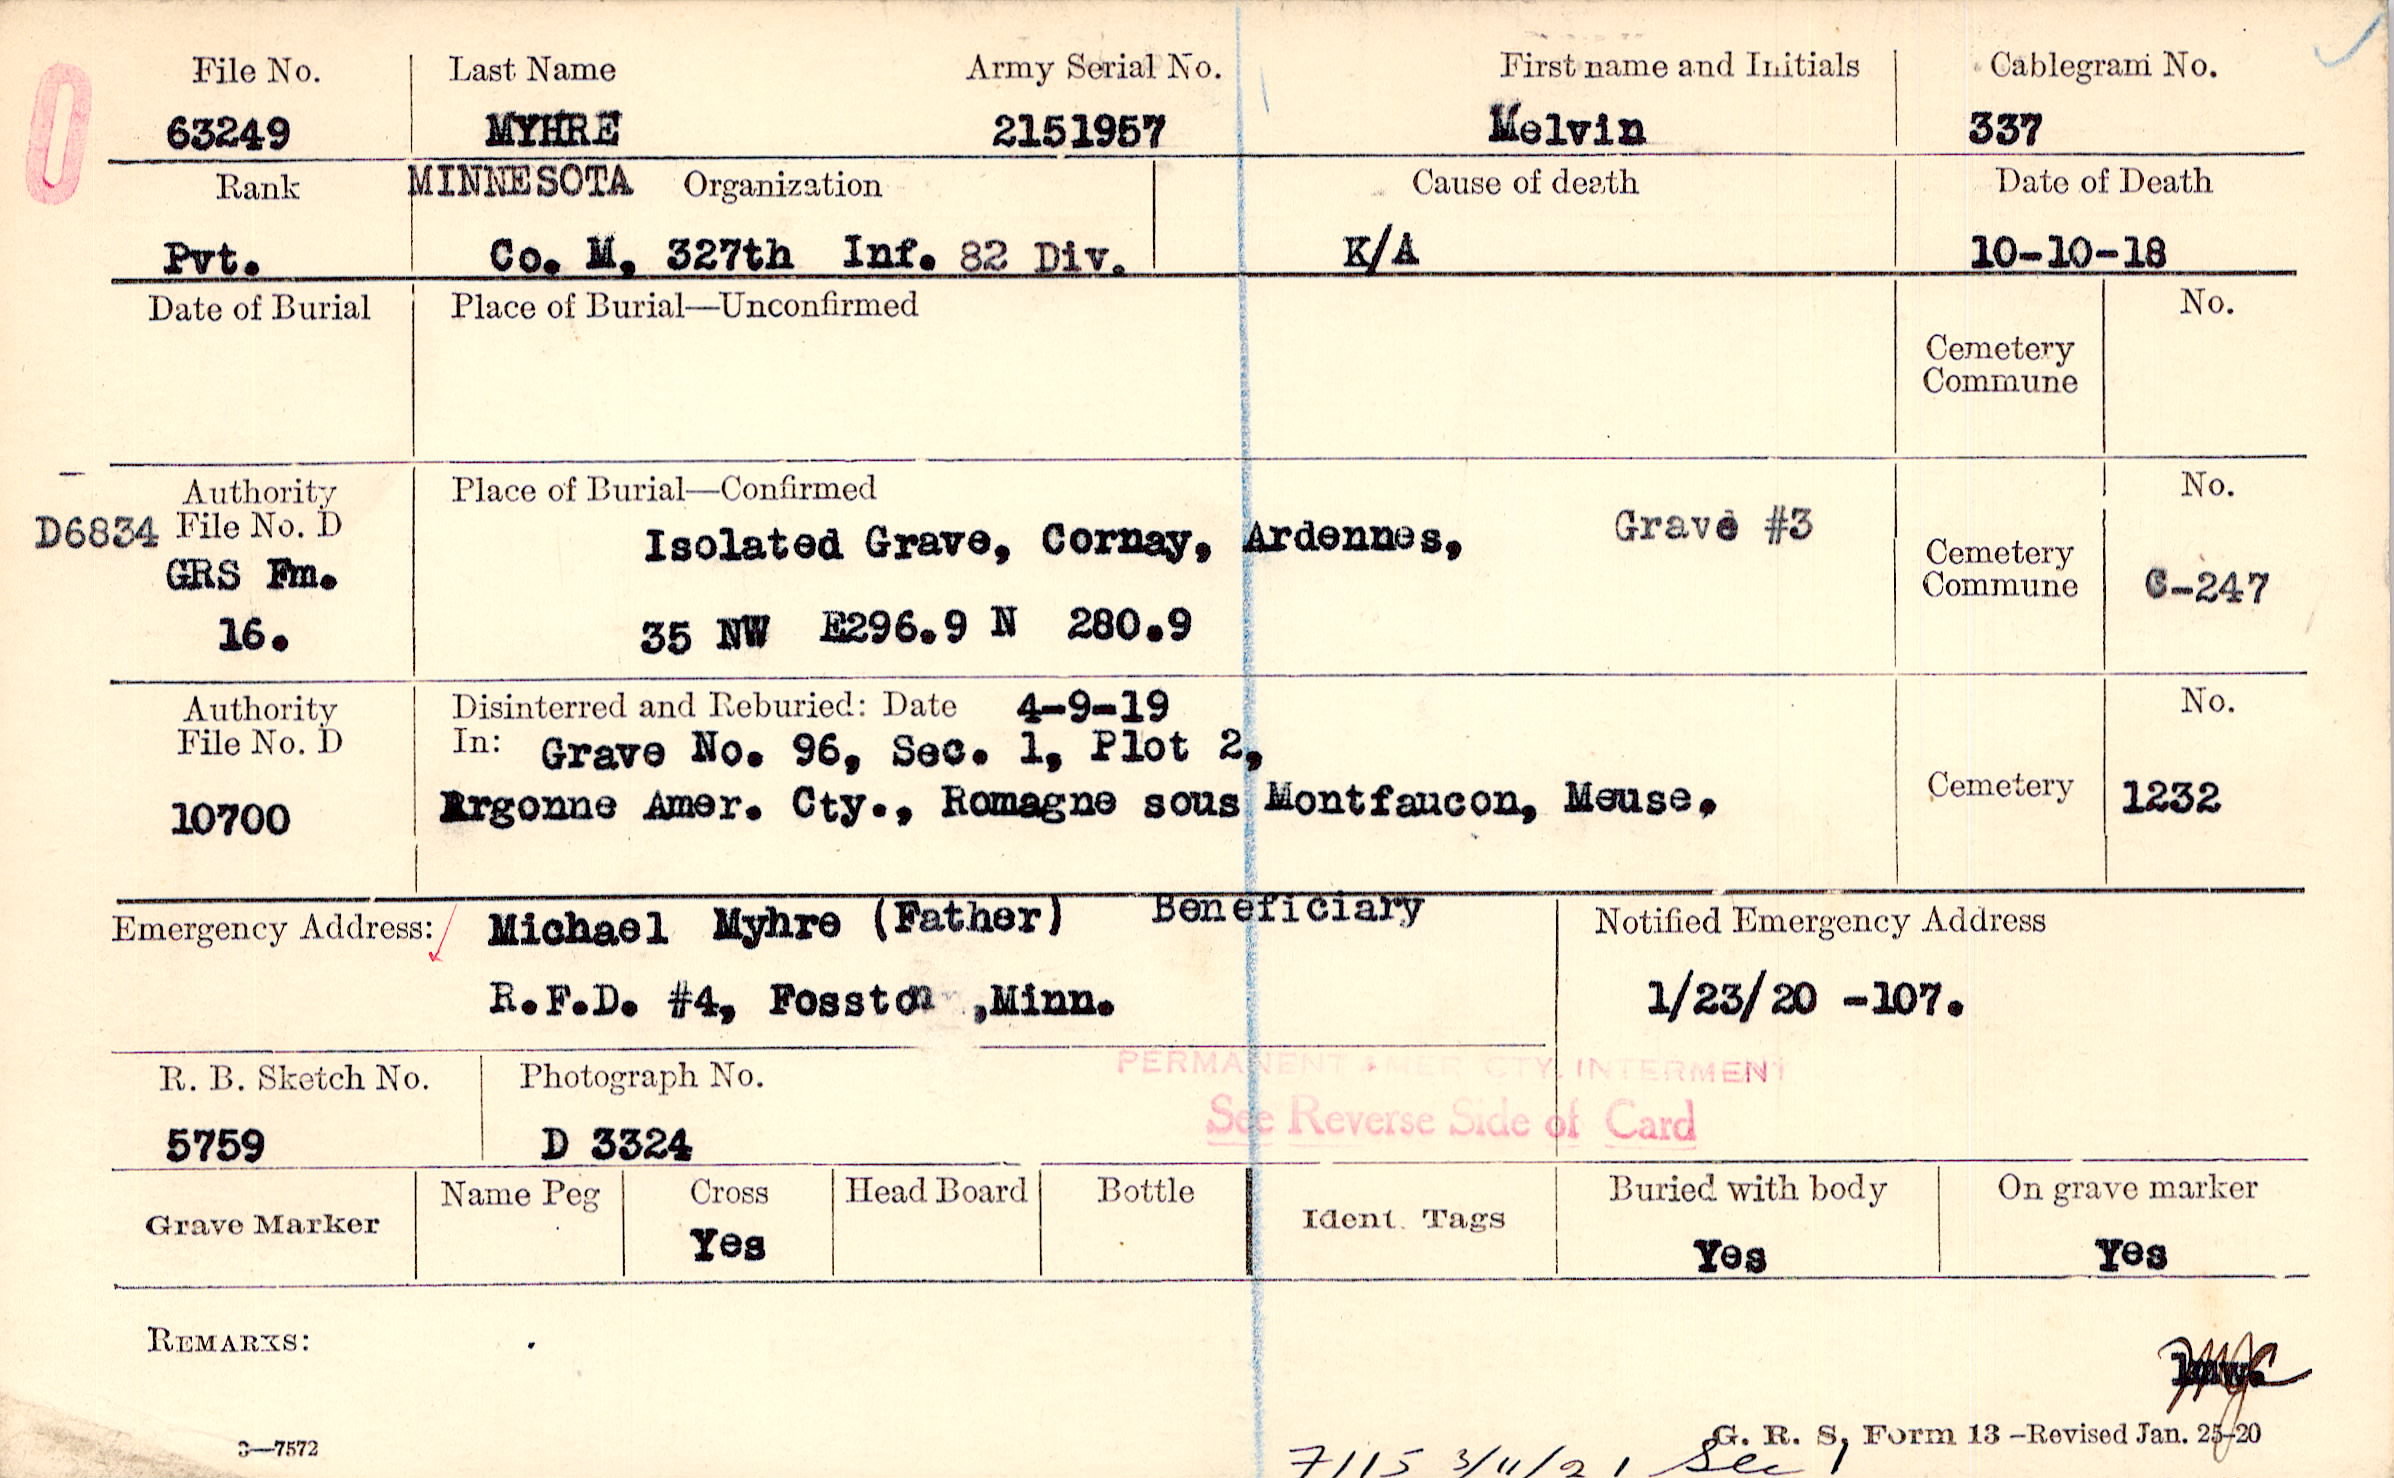 File No. Last Name Army Serial No. First name and Initials Cablegram No.
63249 MYHRE 2151957 Melvin 337
Rank MINNESOTA Organization Cause of death Date of Death
Pvt. Co. M, 327th Inf. 82 Div. K/A 10-10-18
Date of Burial Place of Burial—Unconfirmed No.
Cemetery
Commune
Authority Place of Burial—Confirmed No.
D6834 File No. D Grave #3
Isolated Grave, Cornay, Ardennes,
GRS Fm. Cemetery
Commune C-247
16. 35 NW E296.9 N 280.9
Authority Disinterred and Reburied: Date 4-9-19 No.
File No. D In: Grave No. 96, Sec. 1, Plot 2,
10700 Argonne Amer. Cty., Romagne sous Montfaucon, Meuse. Cemetery 1232
Emergency Address: Michael Myhre (Father) Beneficiary Notified Emergency Address
R.F.D. #4, Fosston ,Minn. 1/23/20 -107.
PERMANENT AMER CTY. INTERMENT
R. B. Sketch No. Photograph No.
See Reverse Side of Card
5759 D 3324
Grave Marker Name Peg Cross Head Board Bottle Ident. Tags Buried with body On grave marker
Yes Yes Yes
REMARKS:
3—7572 G. R. S. Form 13 -Revised Jan. 25-20
7115 3/11/21 Sec 1